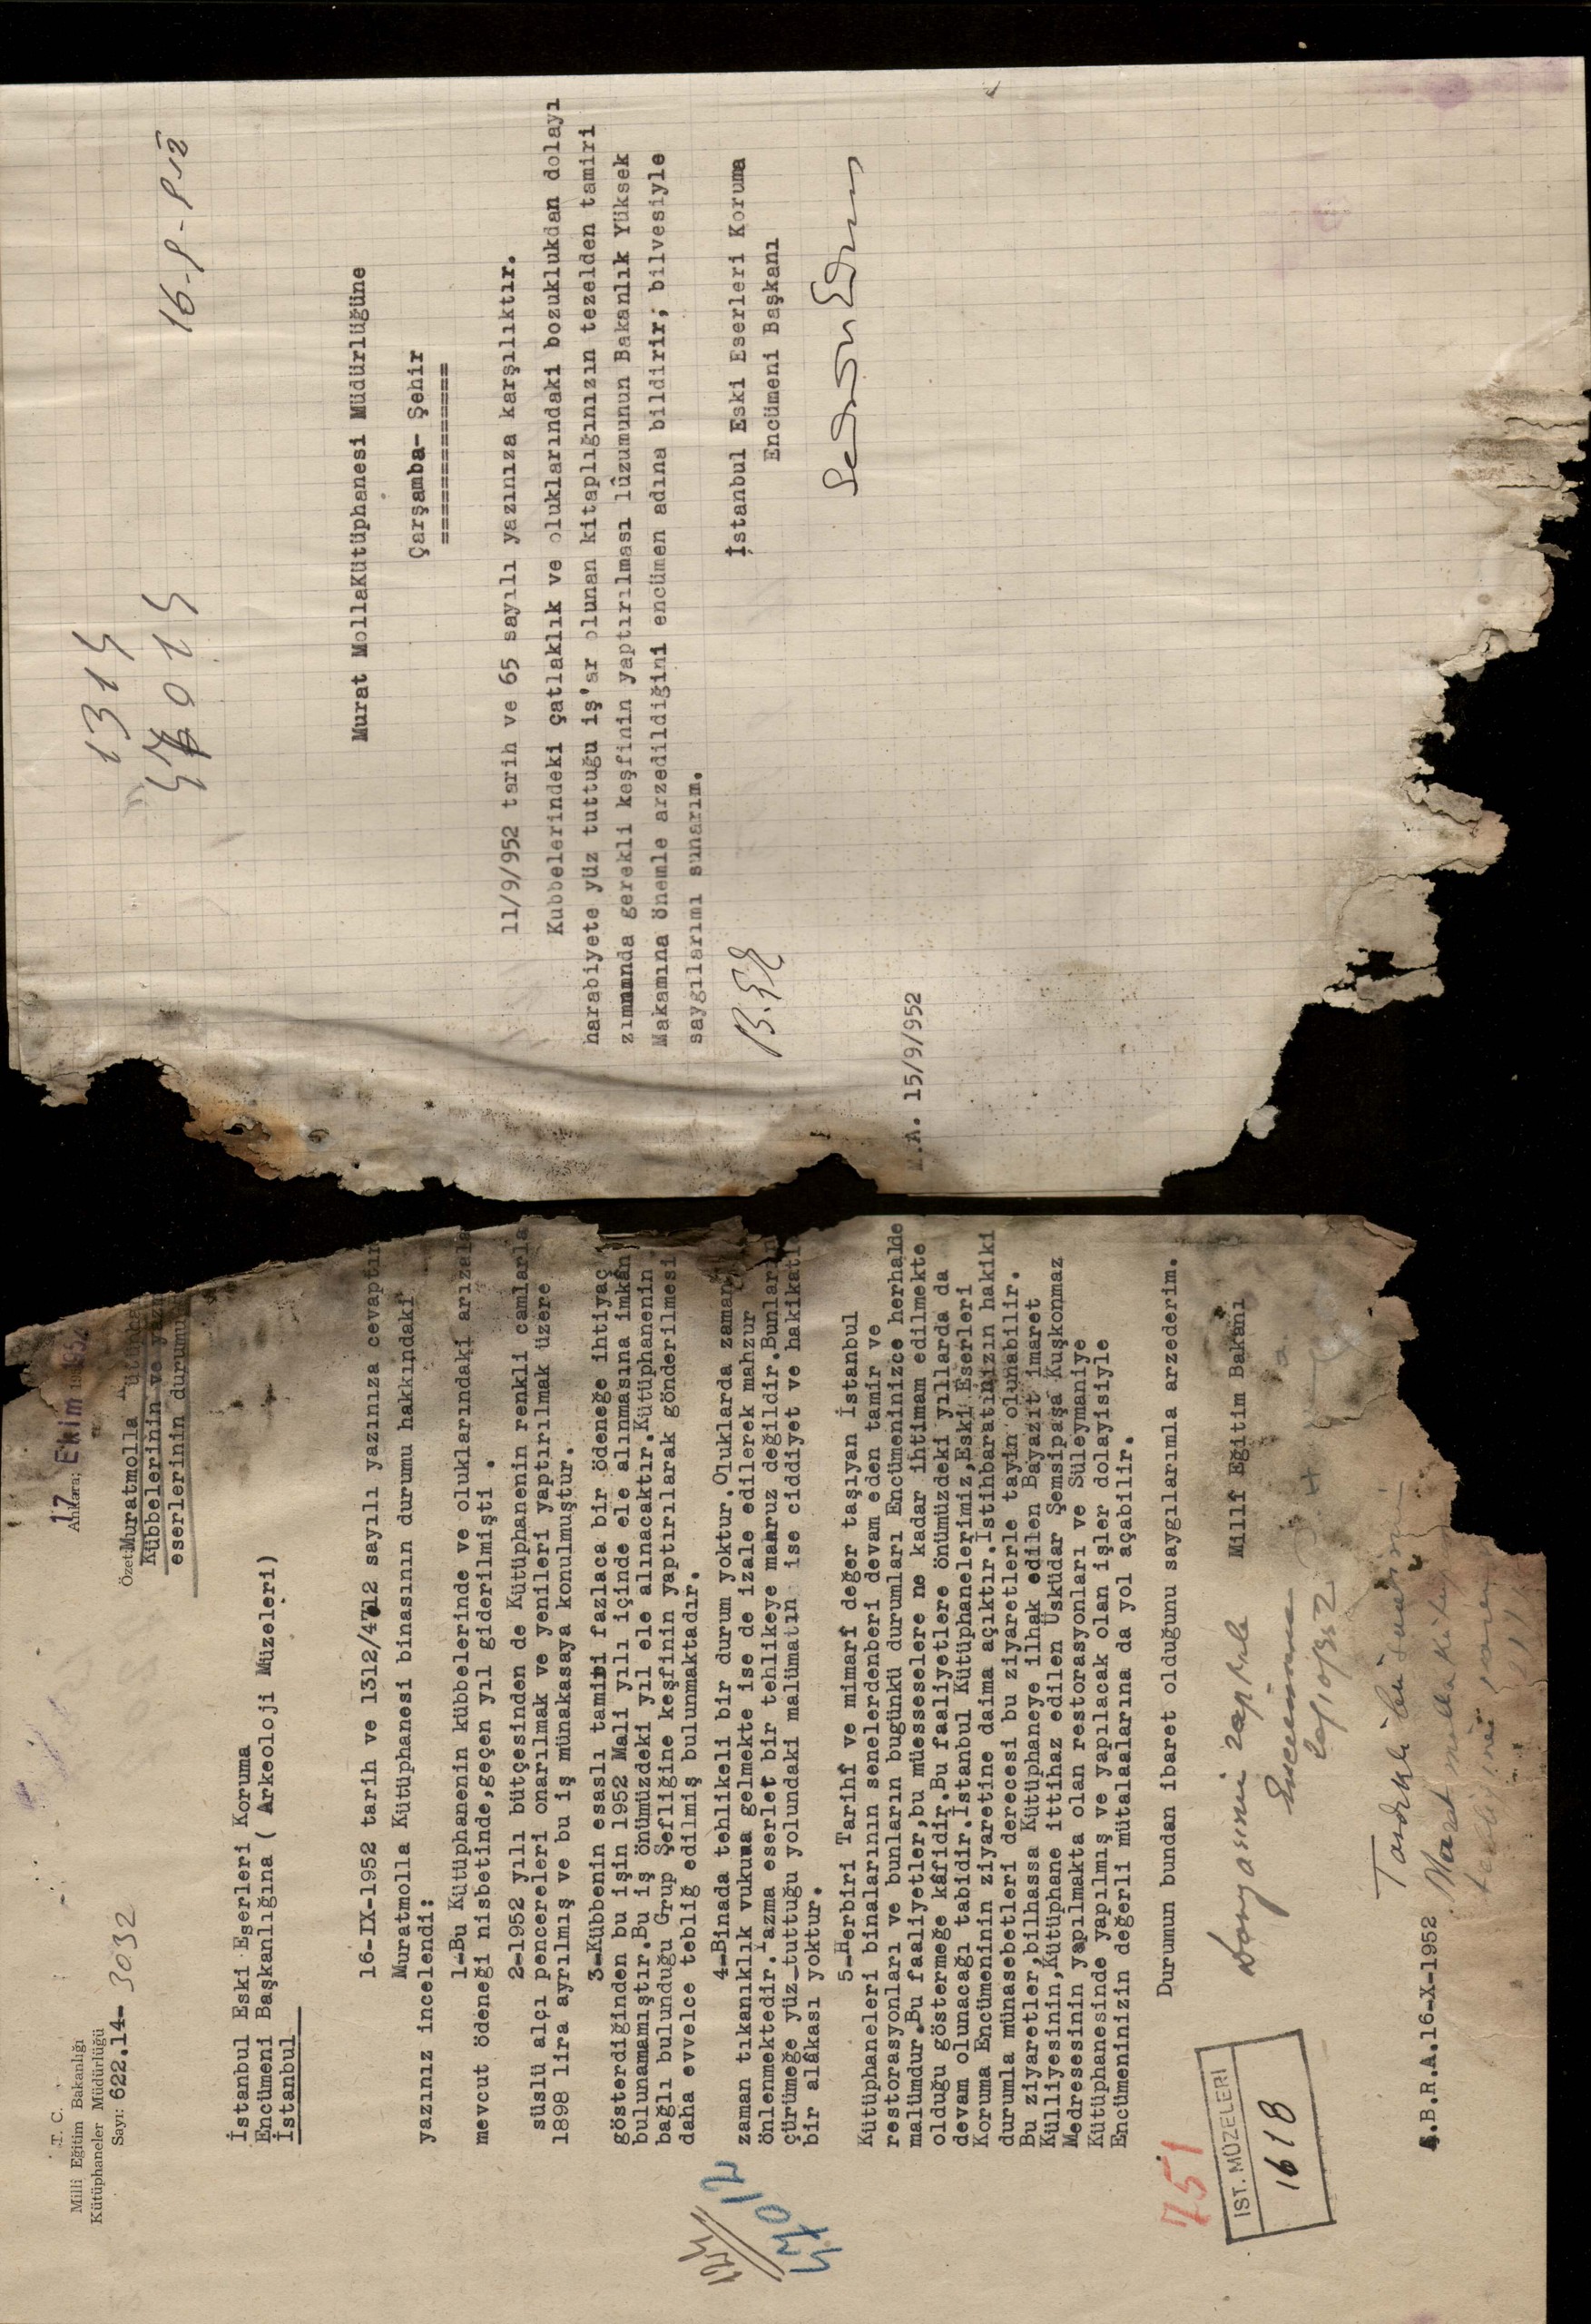 1314
16-9-952
Murat MollaKütüphanesi Müdürlüğüne
Çarşamba- Şehir
=============
11/9/952 tarih ve 65 sayılı yazınıza karşılıktır.
Kubbelerindeki çatlaklık ve oluklarındaki bozuklukdan dolayı
harabiyete yüz tuttuğu iş'ar olunan kitaplığınızın tezelden tamiri
zımnında gerekli keşfinin yaptırılması lûzumunun Bakanlık Yüksek
Makamına önemle arzedildiğini encümen adına bildirir; bilvesiyle
saygılarımı sunarım.
İstanbul Eski Eserleri Koruma
Encümeni Başkanı
M.A. 15/9/952
T. C.
Milli Eğitim Bakanlığı
Kütüphaneler Müdürlüğü
Sayı: 622.14- 3032
Ankara; 17 Ekim 195
Özet:Muratmolla
Kübbelerinin ve yazm
eserlerinin durumu
İstanbul Eski Eserleri Koruma
Encümeni Başkanlığına ( Arkeoloji Müzeleri)
İstanbul
16-IX-1952 tarih ve 1312/4712 sayılı yazınıza cevaptır
Muratmolla Kütüphanesi binasının durumu hakkındaki
yazınız incelendi:
1-Bu Kütüphanenin kübbelerinde ve oluklarındaki arızala
mevcut ödeneği nisbetinde,geçen yıl giderilmişti .
2-1952 yılı bütçesinden de Kütüphanenin renkli camlarla
süslü alçı pencereleri onarılmak ve yenileri yaptırılmak üzere
1898 lira ayrılmış ve bu iş münakasaya konulmuştur.
3-Kübbenin esaslı tamiri fazlaca bir ödeneğe ihtiyaç
gösterdiğinden bu işin 1952 Mali yılı içinde ele alınmasına imkân
bulunamamıştır.Bu iş önümüzdeki yıl ele alınacaktır.Kütüphanenin
bağlı bulunduğu Grup Şefliğine keşfinin yaptırılarak gönderilmesi
daha evvelce tebliğ edilmiş bulunmaktadır.
4-Binada tehlikeli bir durum yoktur.Oluklarda zaman
zaman tıkanıklık vukua gelmekte ise de izale edilerek mahzur
önlenmektedir.Yazma eserler bir tehlikeye maruz değildir.Bunların
çürümeğe yüz tuttuğu yolundaki malümatın ise ciddiyet ve hakikatl
bir alâkası yoktur.
5-Herbiri Tarihî ve mimarî değer taşıyan İstanbul
Kütüphaneleri binalarının senelerdenberi devam eden tamir ve
restorasyonları ve bunların bugünkü durumları Encümeninizce herhalde
malümdur.Bu faaliyetler,bu müesseselere ne kadar ihtimam edilmekte
olduğu göstermeğe kâfidir.Bu faaliyetlere önümüzdeki yıllarda da
devam olunacağı tabidir.İstanbul Kütüphanelerimiz,Eski Eserleri
Koruma Encümeninin ziyaretine daima açıktır.İstihbaratınızın hakiki
durumla münasebetleri derecesi bu ziyaretlerle tayin olunabilir.
Bu ziyaretler,bilhassa Kütüphaneye ilhak edilen Bayazıt imaret
Külliyesinin,Kütüphane ittihaz edilen Üsküdar Şemsipaşa Kuşkonmaz
Medresesinin yapılmakta olan restorasyonları ve Süleymaniye
Kütüphanesinde yapılmış ve yapılacak olan işler dolayisiyle
Encümeninizin değerli mütalaalarına da yol açabilir.
Durumun bundan ibaret olduğunu saygılarımla arzederim.
Millî Eğitim Bakanı
751
İST. MÜZELERİ
1618
Encümene
A.B.R.A.16-X-1952